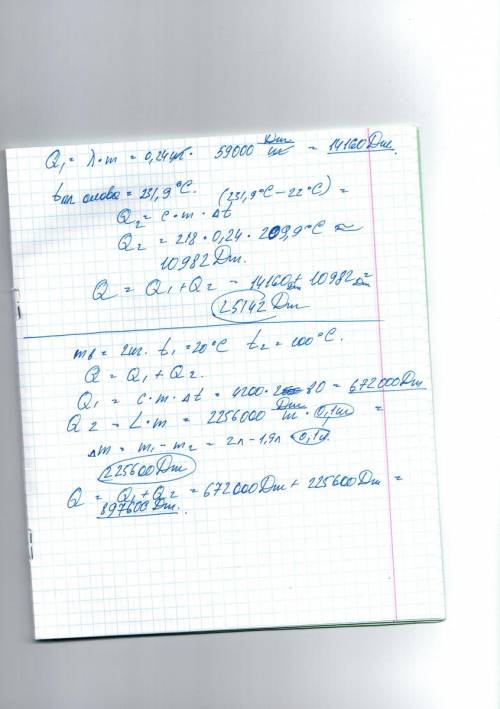 Q₁ = λ·m = 0,24 кг · 59000 Дж/кг = 14160 Дж.
tпл олова = 231,9°C. (231,9°C – 22°C) =
Q₂ = c·m·Δt
Q₂ = 218·0,24·209,9°C ≈
10982 Дж.
Q = Q₁ + Q₂ = 14160 Дж + 10982 Дж =
25142 Дж
mв = 2кг. t₁ = 20°C t₂ = 100°C.
Q = Q₁ + Q₂.
Q₁ = c·m·Δt = 4200·2·80 = 672000 Дж
Q₂ = L·m = 2256000 Дж/кг · 0,1кг =
Δm = m₁ – m₂ = 2л – 1,9л = 0,1кг.
225600 Дж
Q = Q₁ + Q₂ = 672000 Дж + 225600 Дж =
897600 Дж.